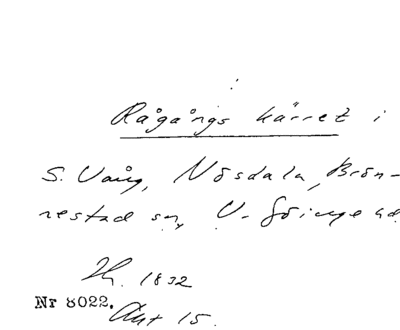 Rågångs kärret i
S. Vång, Nösdala, Brön-
nestad sn, V. Göinge hd
Th. 1832
Nr 8022.
Akt 15.